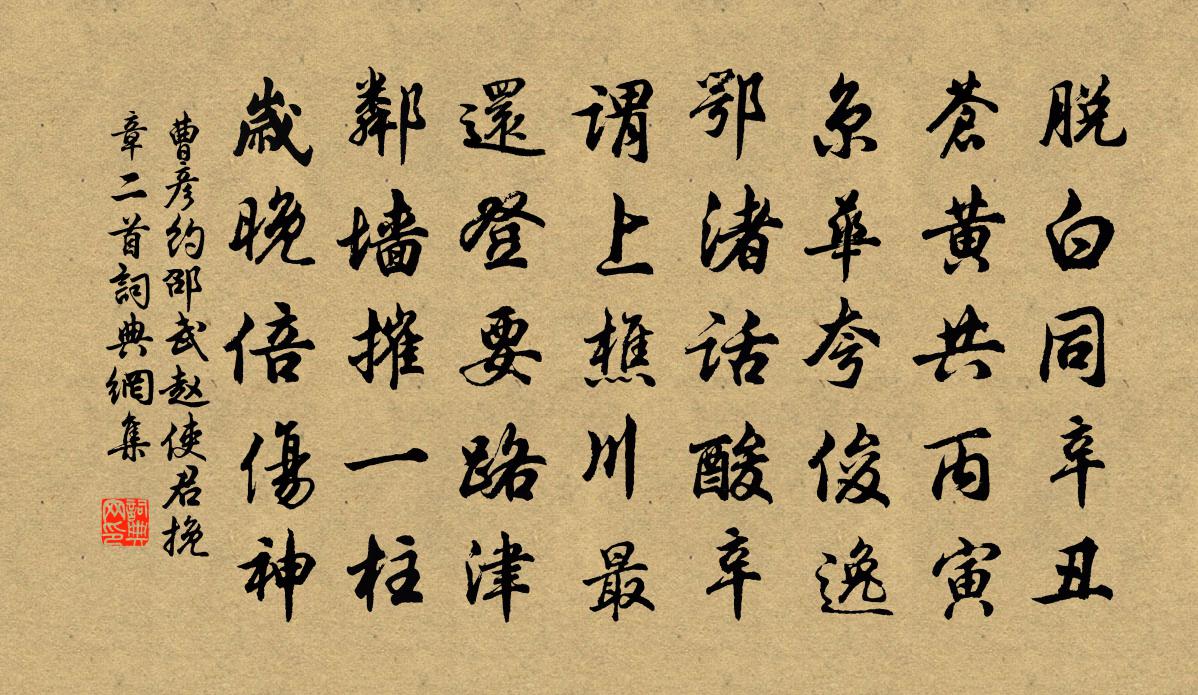 脱白同辛丑
苍黄共丙寅
京華夸俊逸
鄂渚话酸辛
谓上樵川最
還登要路津
鄰墙摧一柱
歲晚倍傷神
曹彦约邵武赵使君挽
章二首詞典網集
詞典網印